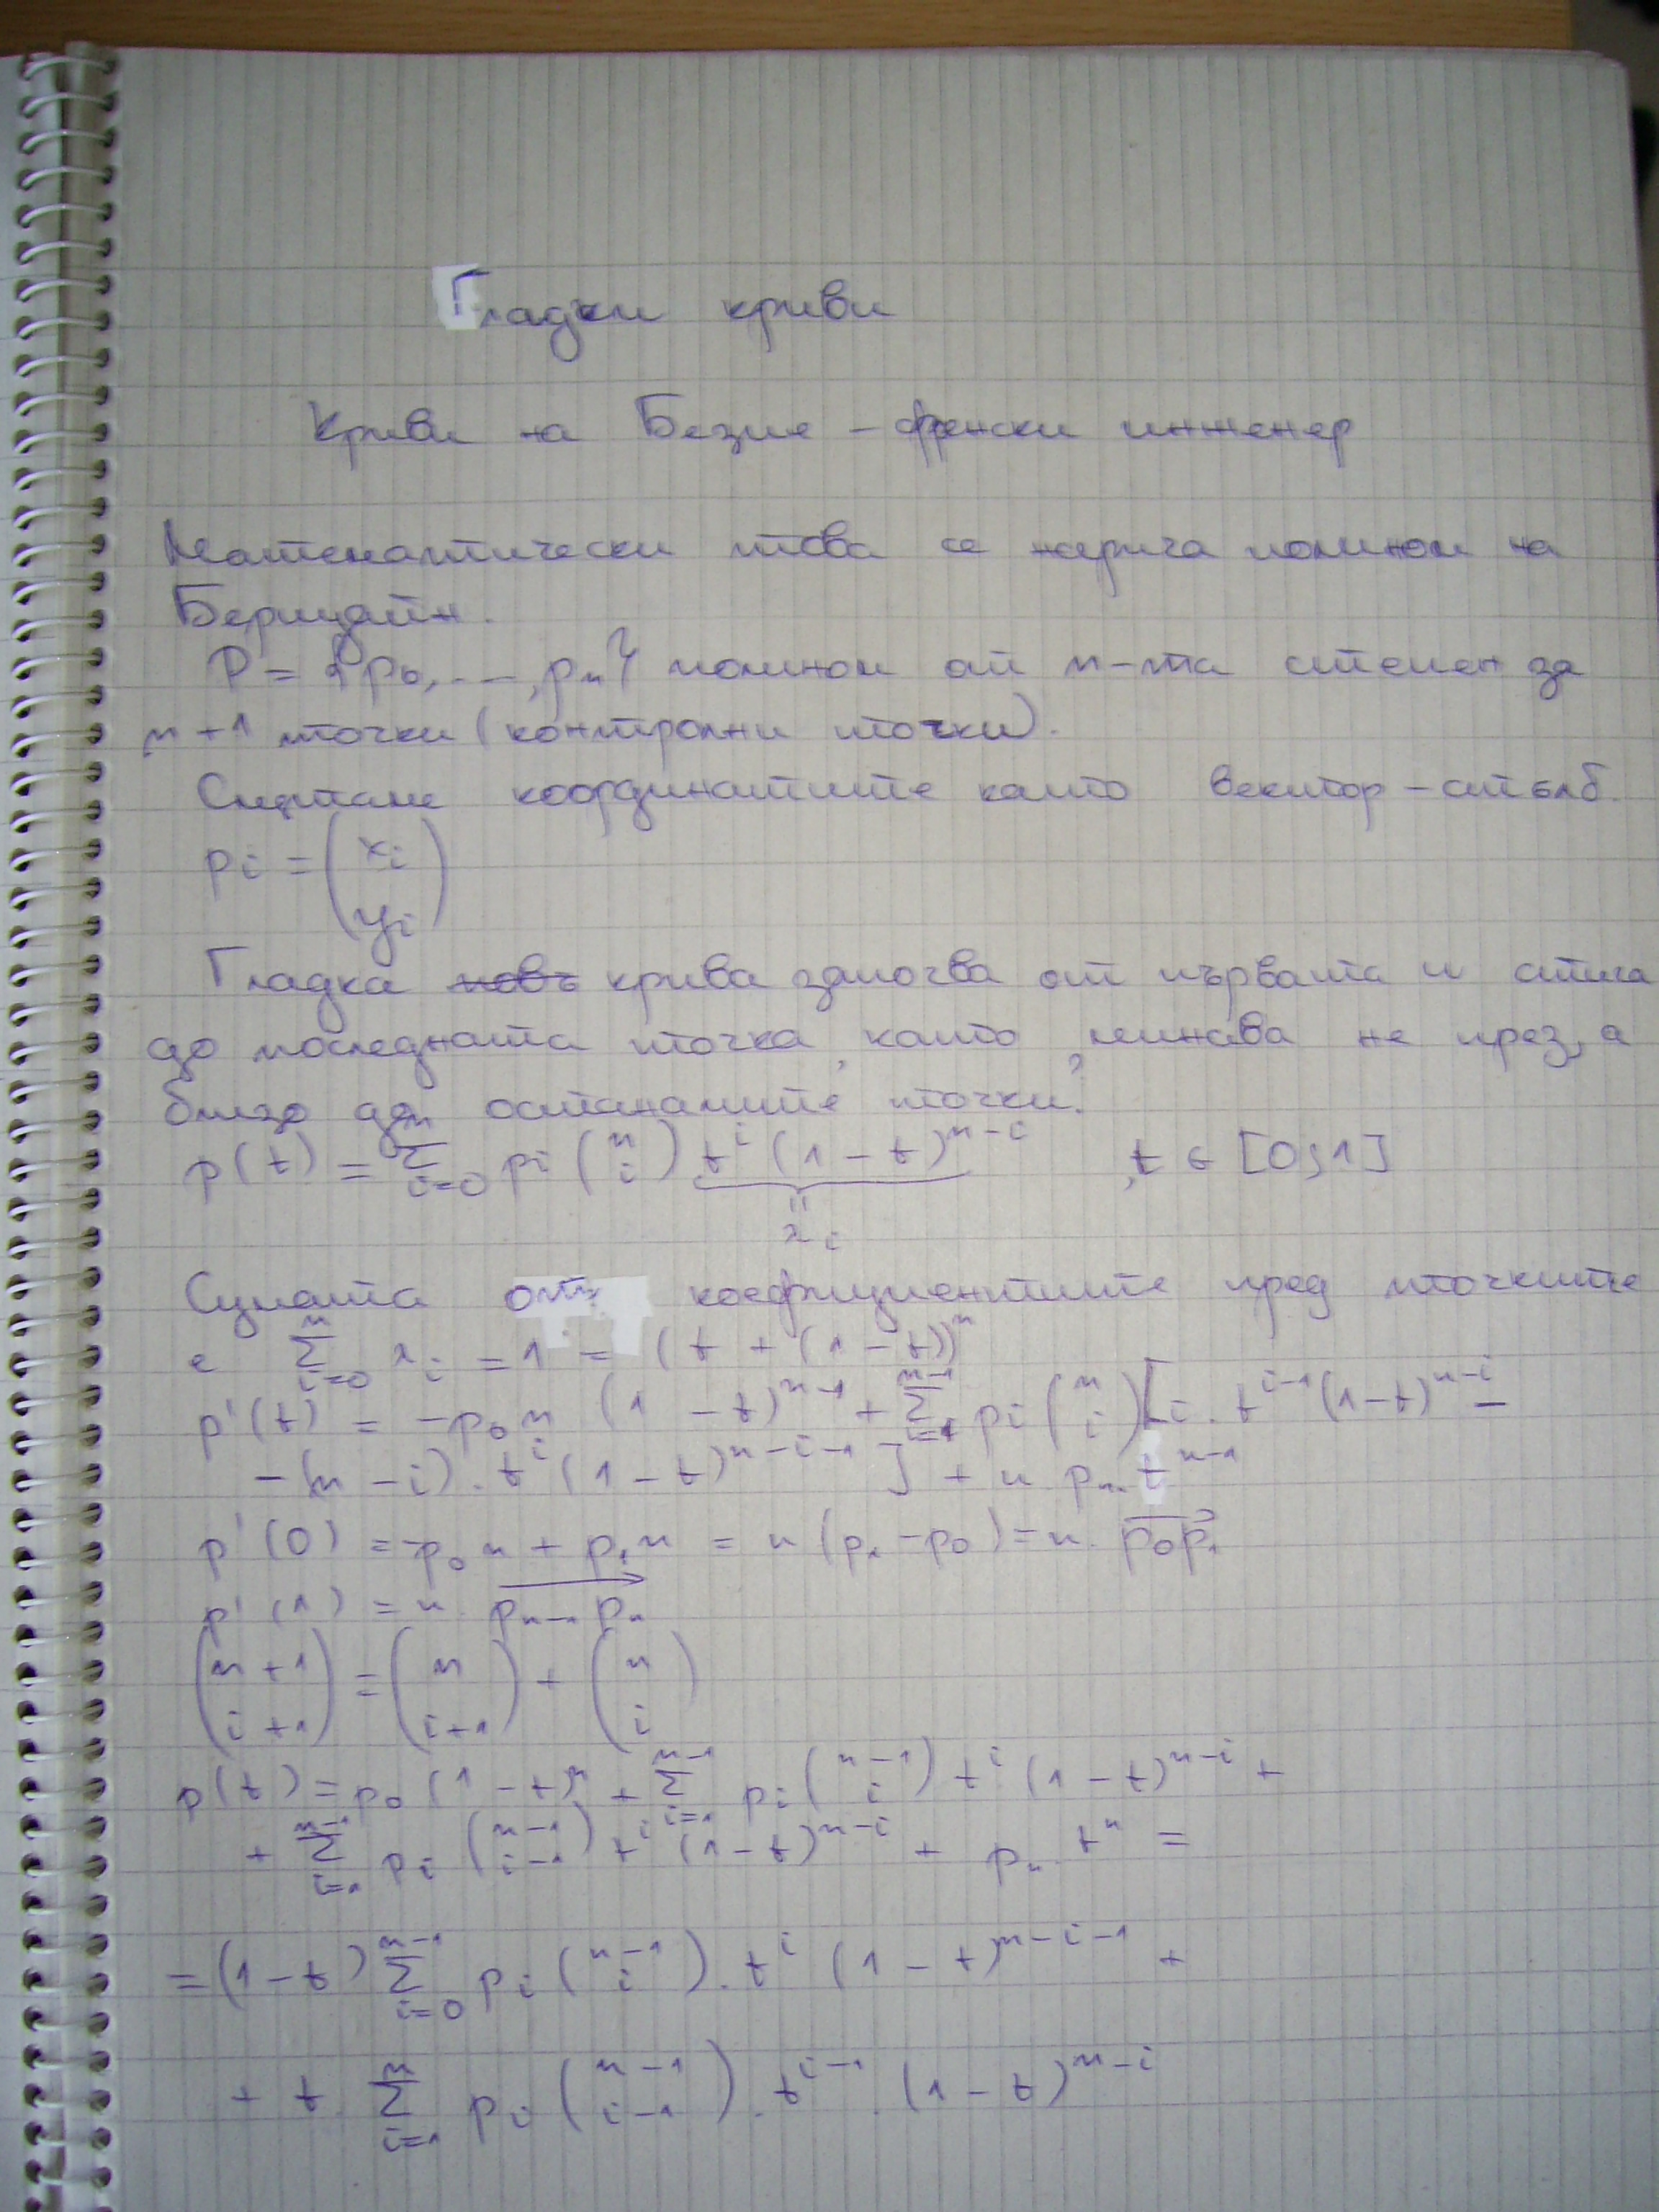 Гладки криви
Криви на Безие – френски инженер
Математически това се нарича полином на
Бернщайн.
P = {p₀, ..., pₙ} полином от n-та степен за
n + 1 точки (контролни точки).
Смятаме координатите като вектор – стълб.
pᵢ = (xᵢ
yᵢ)
Гладка крива започва от първата и стига
до последната точка, като минава не през, а
близо до останалите точки.
p(t) = Σᵢ₌₀ⁿ pᵢ (n i) tⁱ (1 – t)ⁿ⁻ⁱ , t ∈ [0;1]
"
λᵢ
Сумата от коефициентите пред точките
е Σᵢ₌₀ⁿ λᵢ = 1 = (t + (1 – t))ⁿ
p'(t) = –p₀n (1 – t)ⁿ⁻¹ + Σᵢ₌₁ⁿ⁻¹ pᵢ (n i) [i . tⁱ⁻¹ (1–t)ⁿ⁻ⁱ –
– (n – i) . tⁱ (1 – t)ⁿ⁻ⁱ⁻¹ ] + n pₙ . tⁿ⁻¹
p'(0) = –p₀n + p₁n = n (p₁ – p₀) = n . p₀p₁
p'(1) = n . pₙ₋₁ pₙ
(n + 1 i + 1) = (n i+1) + (n i)
p(t) = p₀ (1 – t)ⁿ + Σᵢ₌₁ⁿ⁻¹ pᵢ (n–1 i) tⁱ (1 – t)ⁿ⁻ⁱ +
+ Σᵢ₌₁ⁿ⁻¹ pᵢ (n–1 i–1) tⁱ (1 – t)ⁿ⁻ⁱ + pₙ . tⁿ =
= (1 – t) Σᵢ₌₀ⁿ⁻¹ pᵢ (n–1 i) . tⁱ (1 – t)ⁿ⁻ⁱ⁻¹ +
+ t Σᵢ₌₁ⁿ pᵢ (n–1 i–1) . tⁱ⁻¹ . (1 – t)ⁿ⁻ⁱ